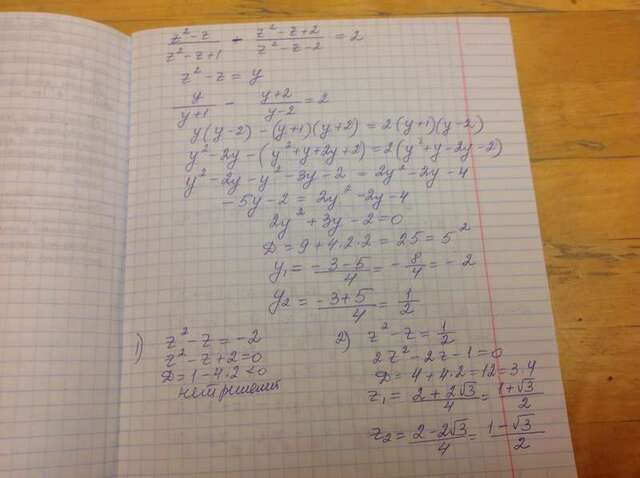 (z²-z)/(z²-z+1) - (z²-z+2)/(z²-z-2) = 2
z²-z = y
y/(y+1) - (y+2)/(y-2) = 2
y(y-2) - (y+1)(y+2) = 2(y+1)(y-2)
y²-2y-(y²+y+2y+2) = 2(y²+y-2y-2)
y²-2y-y²-3y-2 = 2y²-2y-4
-5y-2 = 2y²-2y-4
2y²+3y-2=0
D = 9+4·2·2 = 25 = 5²
y₁ = (-3-5)/4 = -8/4 = -2
y₂ = (-3+5)/4 = 1/2
1) z²-z = -2
z²-z+2=0
D = 1-4·2<0
нет решений
2) z²-z = 1/2
2z²-2z-1=0
D = 4+4·2=12=3·4
z₁ = (2+2√3)/4 = (1+√3)/2
z₂ = (2-2√3)/4 = (1-√3)/2